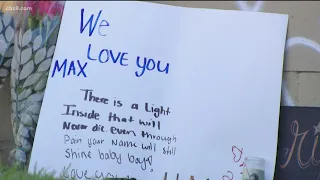 cbs8.com
We
LOVE YOU
MAX
There is a Light
Inside that will
Never die even through
Pain your name will still
Shine baby boy!
Love you